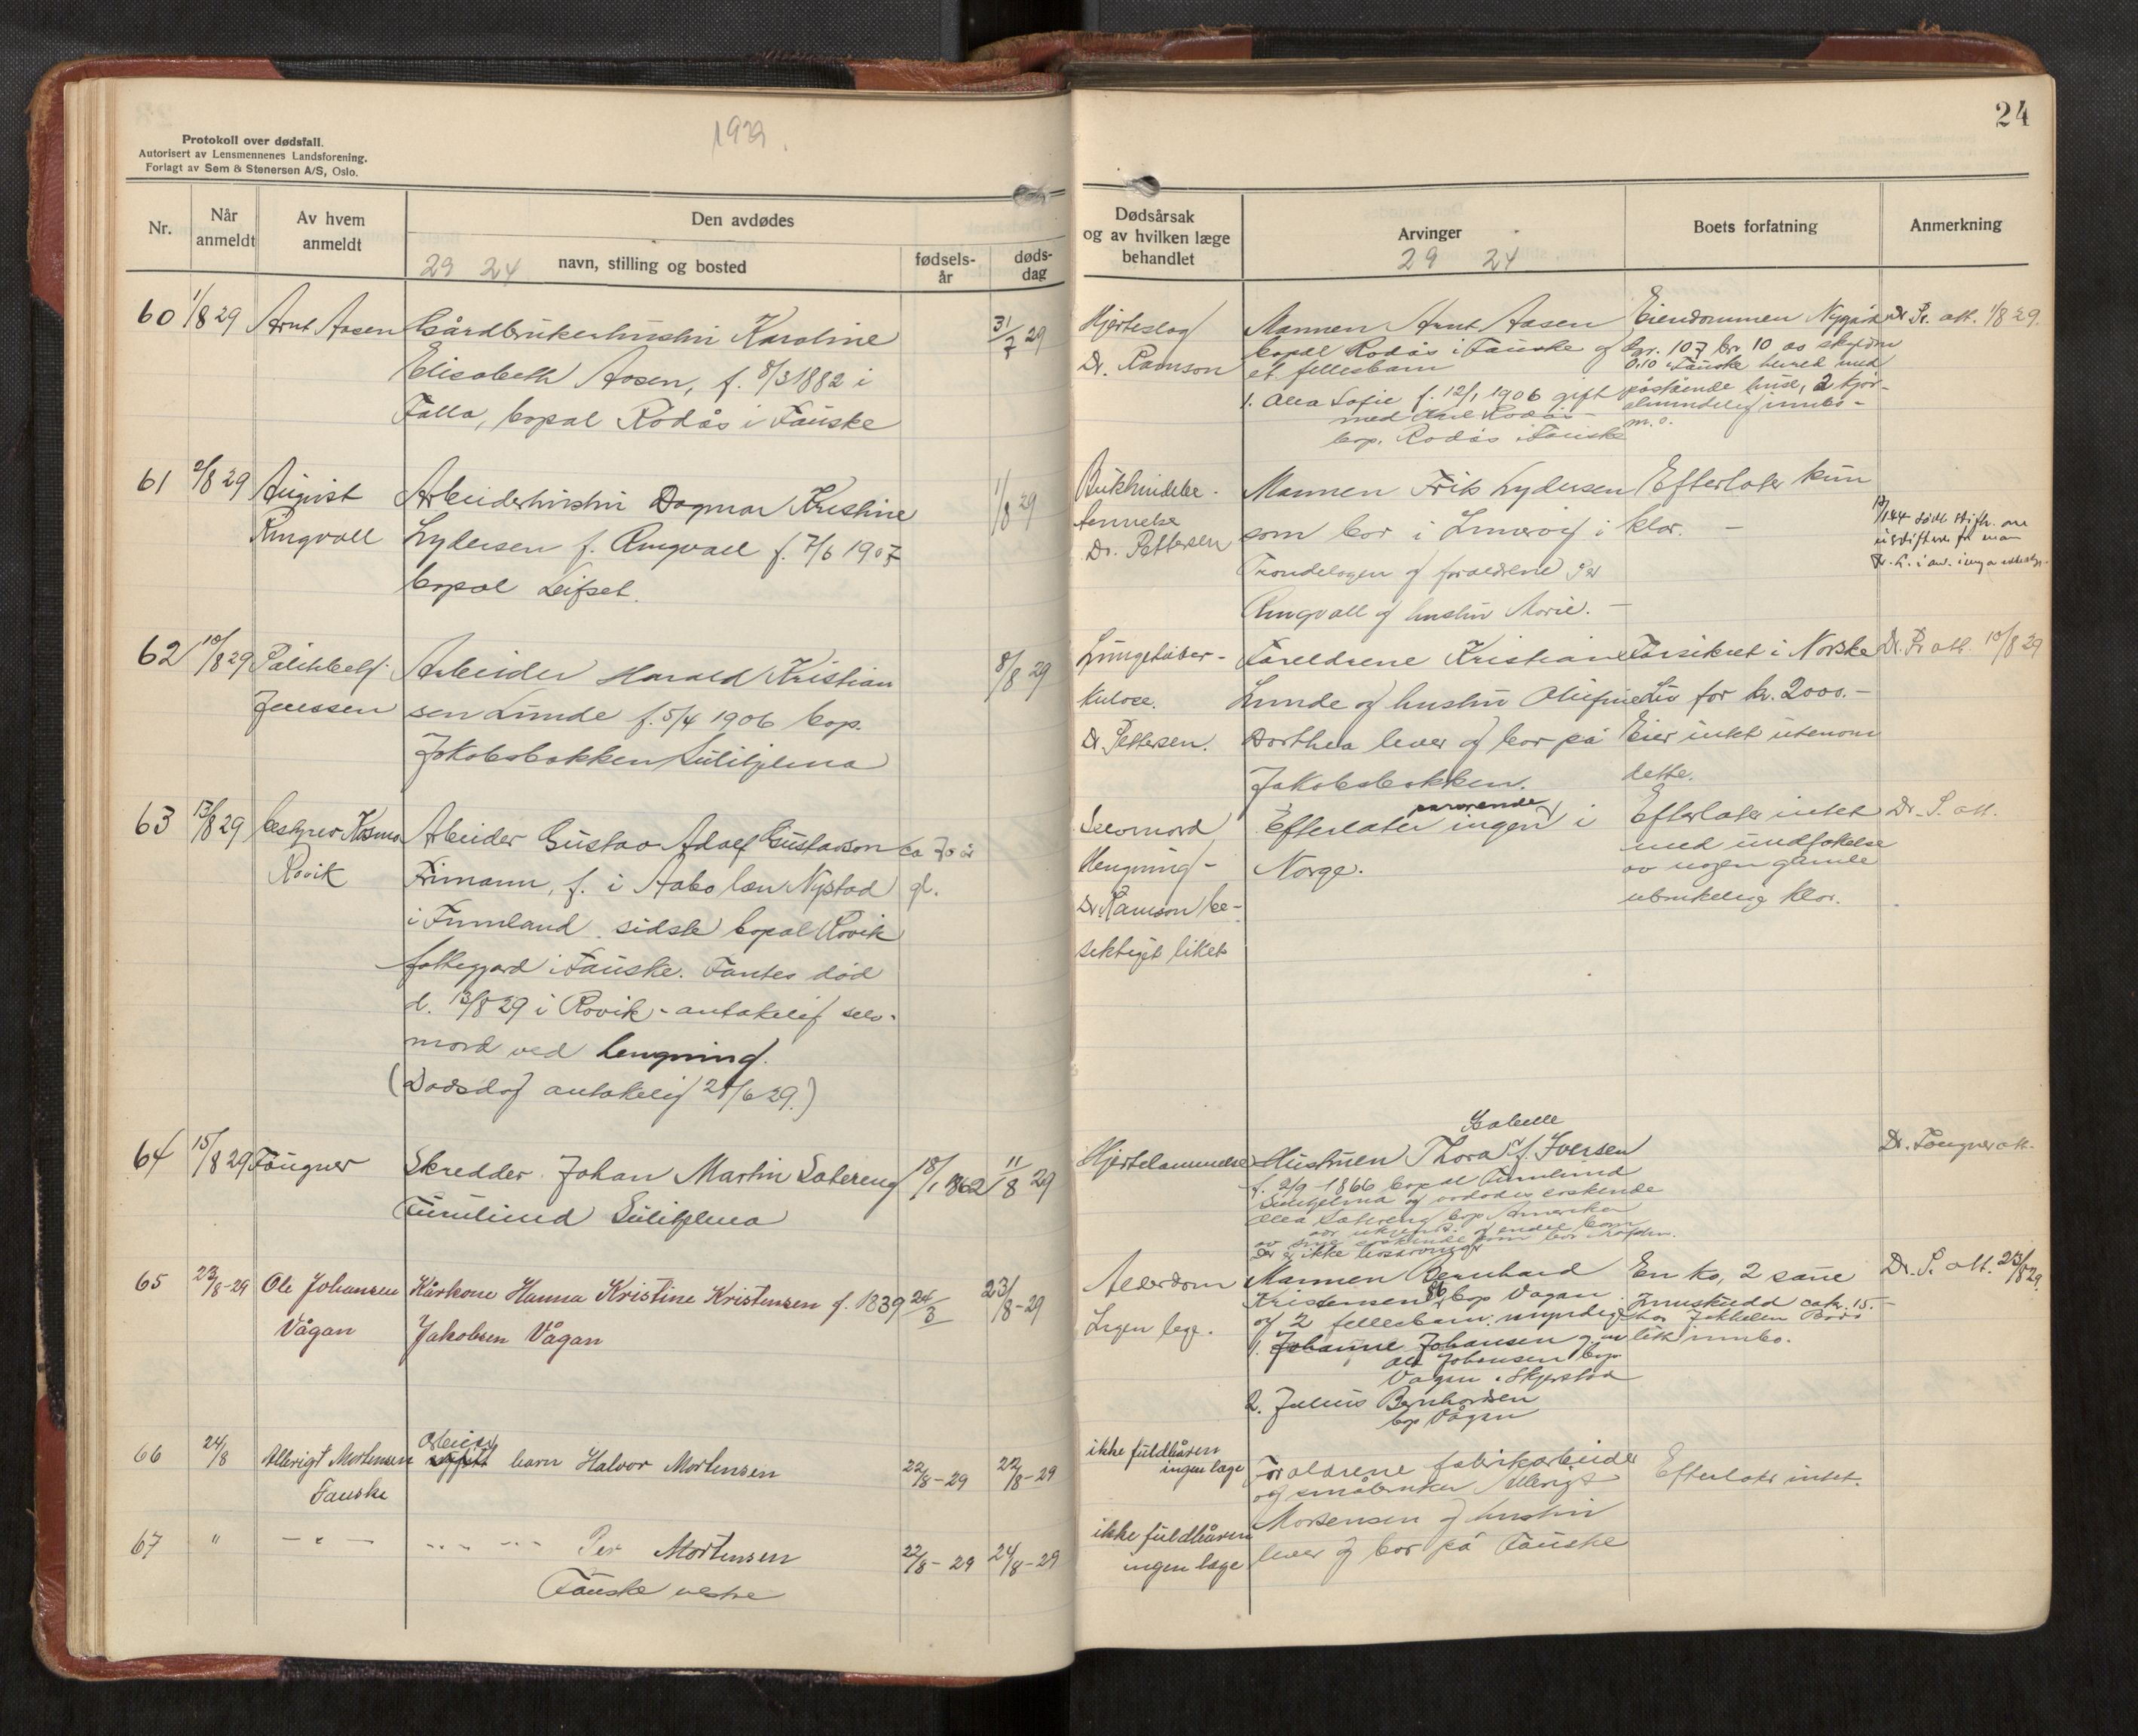 1929.
24
Protokoll over dødsfall.
Autorisert av Lensmennenes Landsforening.
Forlagt av Sem & Stenersen A/S, Oslo.
Nr.
Når anmeldt
Av hvem anmeldt
Den avdødes
29 24
navn, stilling og bosted
fødsels-
år
døds-
dag
Dødsårsak
og av hvilken læge
behandlet
Arvinger
29 24
Boets forfatning
Anmerkning
60
1/8 29
Arnt Aasen
Gårdbrukerhustru Karoline
Elisabeth Aasen, f. 8/3 1882 i
Falla, bopæl Rødås i Fauske
31/7 29
Hjerteslag
Dr. Ramson
Mannen Arnt Aasen
bopæl Rødås i Fauske og
et fellesbarn
1. Alea Sofie f. 12/1 1906 gift
med Karl Rodås
bop. Rodås i Fauske
Eiendommen
gnr. 107 br 10 av skyldm
0,10 i Fauske herred med
påstående huse, 2 kjør
almindelig innbo
m. v.
Dr. Pr. att. 1/8 29.
61
2/8 29
August
Ringvall
Arbeiderhustru Dagmar Kristine
Lydersen f. Ringvall f. 7/6 1907
bopæl Leifset.
1/8 29
Bukhindebe-
tennelse
Dr. Pettersen
Mannen Frits Lydersen
som bor i Innervig i
Trøndelagen og foreldrene Per
Ringvall og hustru Marie.
Efterlater kun
klær. —
62
10/8 29
Jenssen
Arbeider Harald Kristian
sen Lunde f. 5/4 1906 bop.
Jakobsbakken Sulitjelma
8/8 29
Lungetuber-
kulose.
Dr. Pettersen.
Foreldrene Kristian
Lunde og hustru Olufine
Dorthea lever og bor på
Jakobsbakken.
Forsikret i Norske
Liv for kr. 2000.-
Eier intet utenom
dette.
Dr. P. att. 10/8 29
63
13/8 29
bestyrer Kosmo
Røvik
Arbeider Gustav Adolf Gustavson
Frimann, f. i Aabo len Nystad
i Finnland sidste bopæl Røvik
folkegård i Fauske. Fantes død
d. 13/8 29 i Røvik - antakelig selv-
mord ved hengning.
(Dødsdag antakelig 28/6 29.)
ca 70 år
gl.
Selvmord
Hengning -
Dr. Ramson be-
siktiget liket
Efterlater ingen pårørende i
Norge.
Efterlater intet
med undtakelse
av nogen gamle
ubrukelige klær.
Dr. P. att.
64
15/8 29
Fougner
Skredder Johan Martin Sætereng
Furulund Sulitjelma
18/1 1862
11/8 29
Hjertelammelse
Isabelle
Hustruen Thora f. Iversen
f. 2/9 1866 bopæl Furulund
Sulitjelma og avdødes søskende
Alea Sætereng bop Amerika
Dr. Fougner att.
65
23/8-29
Ole Johansen
Vågan
Kårkone Hanna Kristine Kristensen f. 1839 24/3
Jakobsen Vågan
23/8-29
Alderdom
Ingen læge.
Mannen Bernhard
Kristensen 86 bop Vågan
og 2 fellesbarn: myndige
1. Johanne Johansen g. m
Ole Johansen bop.
Vågan i Skjerstad
2. Julius Bernhardsen
bop Vågan
En ko, 2 saue
Innskudd ca kr. 15.-
hos Jakhelln Bodø
litt innbo.
Dr. P. att. 23/8 29.
66
24/8
Albrigt Mortensen
Fauske
Arbeider
barn Halvor Mortensen
22/8-29
22/8-29
ikke fuldbåren
ingen læge
Foreldrene fabrikarbeider
og småbruker Albrigt
Mortensen og hustru
lever og bor på Fauske
Efterlater intet.
67
"
— " —
--- ---
Per Mortensen
Fauske vestre
22/8-29
24/8-29
ikke fuldbåren
ingen læge